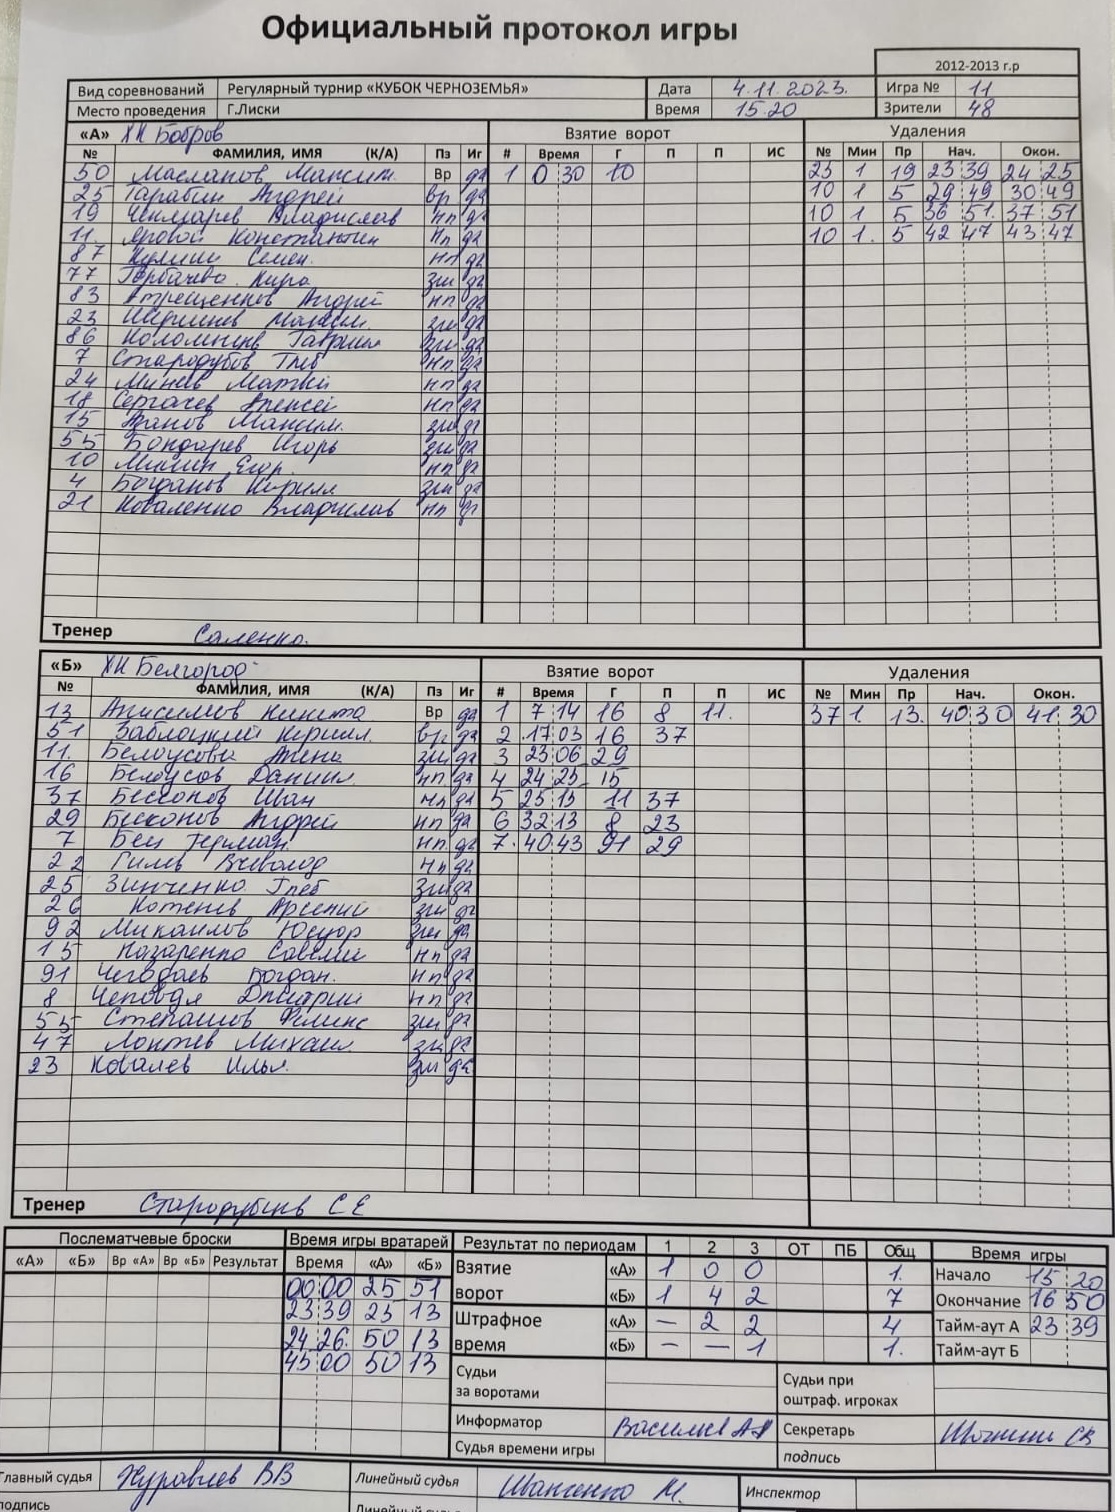 Официальный протокол игры
2012-2013 г.р
Вид соревнований Регулярный турнир «КУБОК ЧЕРНОЗЕМЬЯ» Дата 4.11.2023. Игра № 11
Место проведения Г.Лиски Время 15.20 Зрители 48
«А» ХК Бобров Взятие ворот Удаления
№ ФАМИЛИЯ, ИМЯ (К/А) Пз Иг # Время Г П П ИС № Мин Пр Нач. Окон.
50 Масланов Максим. Вр да 1 0 30 10 23 1 19 23 39 24 25
25 Тарабин Андрей вр да 10 1 5 29 49 30 49
19 Чекмарев Владислав нп да 10 1 5 36 51. 37 51
11. Яровой Константин нп да 10 1. 5 42 47 43 47
87 Кулиш Семен. нп да
77 Горбачева Кира зщ да
83 Андрей нп да
23 Максим. зщ да
86 зщ да
7 Стародубов Глеб нп да
24 Минев Матвей нп да
18 Сергачев Алексей нп да
15 Жданов Максим. зщ да
55 Бондарев Игорь зщ да
10 Милин Егор. нп да
4 Богданов Кирилл зщ да
21 Коваленко Владислав нп да
Тренер Саленко.
«Б» ХК Белгород Взятие ворот Удаления
№ ФАМИЛИЯ, ИМЯ (К/А) Пз Иг # Время Г П П ИС № Мин Пр Нач. Окон.
13 Анисимов Никита Вр да 1 7 14 16 8 11. 37 1. 13. 40 30 41 30
51 Заблоцкий Кирилл. вр да 2 17 03 16 37
11. Белоусова Алена зщ да 3 23 06 29
16 Белоусов Даниил. нп. да 4 24 25 15
37 Бессонов Иван нп да 5 25 13 11 37
29 Андрей нп да 6 32 13 8 23
7 Бец Герман. нп. да 7. 40 43 91 29
22 Гиль Всеволод нп да
25 Зинченко Глеб зщ да
26 Котенев Арсений зщ да
92 Михайлов зщ да
15 Назаренко Савелий нп да
91 Чегодаев Богдан. нп да
8 Дмитрий нп да
55 Степашов Феликс зщ да
47 Лоптев Михаил. зщ да
23 Ковалев Илья. зщ да
Тренер С Е
Послематчевые броски Время игры вратарей Результат по периодам 1 2 3 ОТ ПБ Общ Время игры
«А» «Б» Вр «А» Вр «Б» Результат Время «А» «Б»
00 00 25 51
23 39 25 13
24 26. 50 13
45 00 50 13
Взятие ворот «А» 1 0 0 1. Начало 15 20
«Б» 1 4 2 7 Окончание 16 50
Штрафное время «А» — 2 2 4 Тайм-аут А 23 39
«Б» — — 1 1. Тайм-аут Б
Судьи за воротами Судьи при оштраф. игроках
Информатор Васильев Секретарь
Судья времени игры подпись
Главный судья Журавлев ВВ Линейный судья Иваненко М. Инспектор
подпись Линейный судья